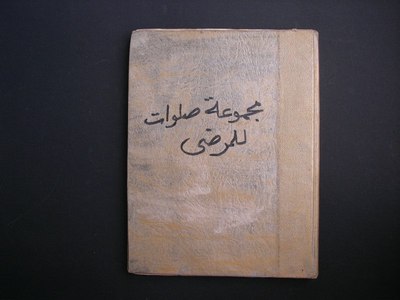 مجموعة صلوات
للمرضى